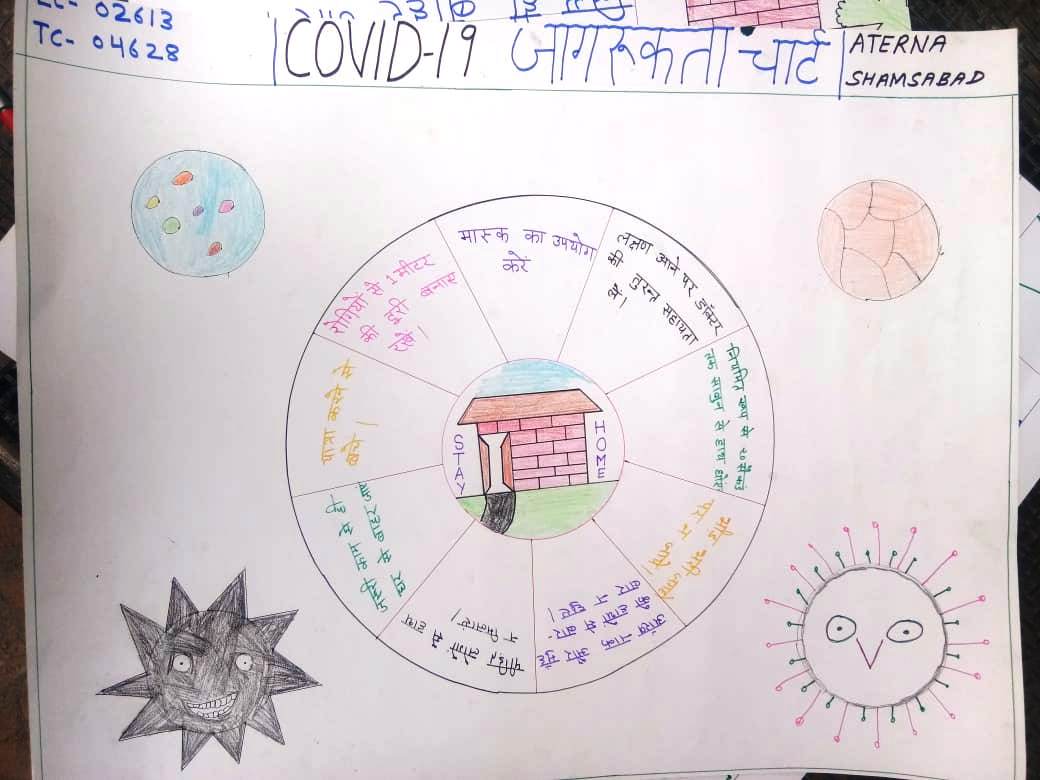 02613
TC- 04628
COVID-19 जागरूकता चार्ट
ATERNA
SHAMSABAD
मास्क का उपयोग
करें
लक्षण आने पर डॉक्टर
की तुरन्त सहायता
लें।
नियमित रूप से २० सैकंड
तक साबुन से हाथ धोएं
भीड़ भरी जगह
पर न जायें।
आंख नाक और मुँह
को हाथों से बार-
बार न छुएं।
पीड़ित लोगों से हाथ
न मिलाएं।
जरूरी काम से ही
घर से बाहर जाएं
यात्रा करने से
बचें।
रोगियों से 1 मीटर
की दूरी बनाए
रखें।
STAY
HOME